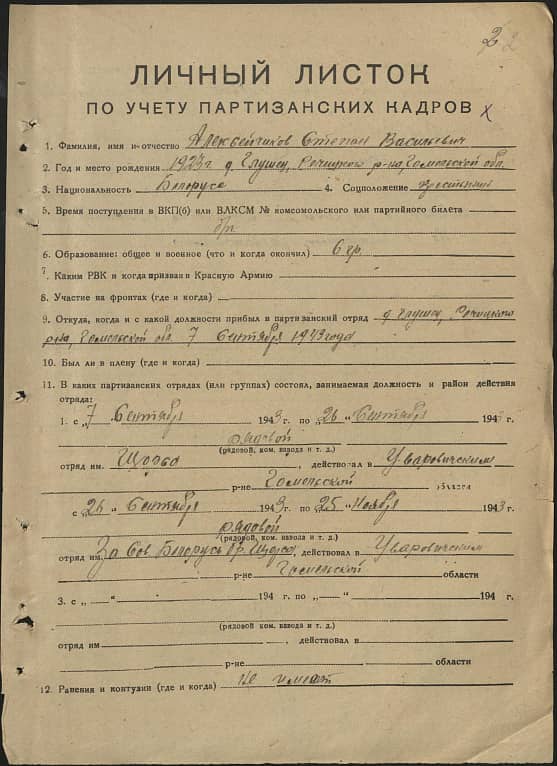 2
ЛИЧНЫЙ ЛИСТОК
ПО УЧЕТУ ПАРТИЗАНСКИХ КАДРОВ
1. Фамилия, имя и отчество Алексейчиков Степан Васильевич
2. Год и место рождения 1927г д. Глушец, Речицкого р-на, Гомельской обл.
3. Национальность Белорус 4. Соцположение крестьянин
5. Время поступления в ВКП(б) или ВЛКСМ № комсомольского или партийного билета
6. Образование: общее и военное (что и когда окончил) 6 гр.
7. Каким РВК и когда призван в Красную Армию
8. Участие на фронтах (где и когда)
9. Откуда, когда и с какой должности прибыл в партизанский отряд д. Глушец, Речицкого
р-на, Гомельской обл. 7 Сентября 1943 года
10. Был ли в плену (где и когда)
11. В каких партизанских отрядах (или группах) состоял, занимаемая должность и район действия
отряда:
1. с „7 Сентября 1943 г. по „26" Сентября 1943 г.
рядовой
(рядовой, ком. взвода и т. д.)
отряд им. Щорса, действовал в Уваровичским
р-не Гомельской области
с „26" Сентября 1943 г. по „25" Ноября 1943 г.
рядовой
(рядовой, ком. взвода и т. д.)
отряд им. За Сов Белорусь бр. Щорса, действовал в Уваровичским
р-не Гомельской области
3. с „ " 194 г. по „ " 194 г.
(рядовой, ком. взвода и т. д.)
отряд им. , действовал в
р-не области
12. Ранения и контузии (где и когда) не имеет